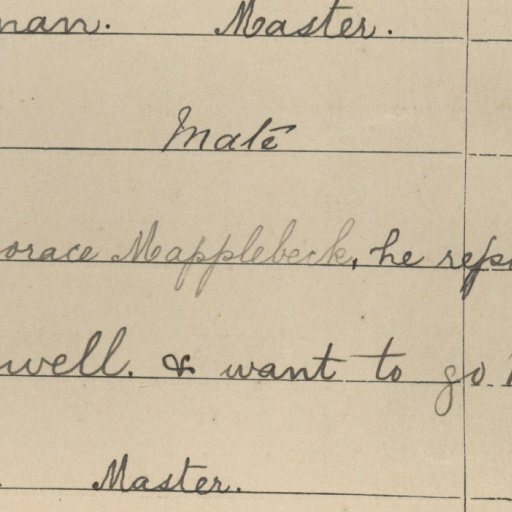 man. Master.
Mate
orace Mapplebeck, he
well. & want to go
Master.